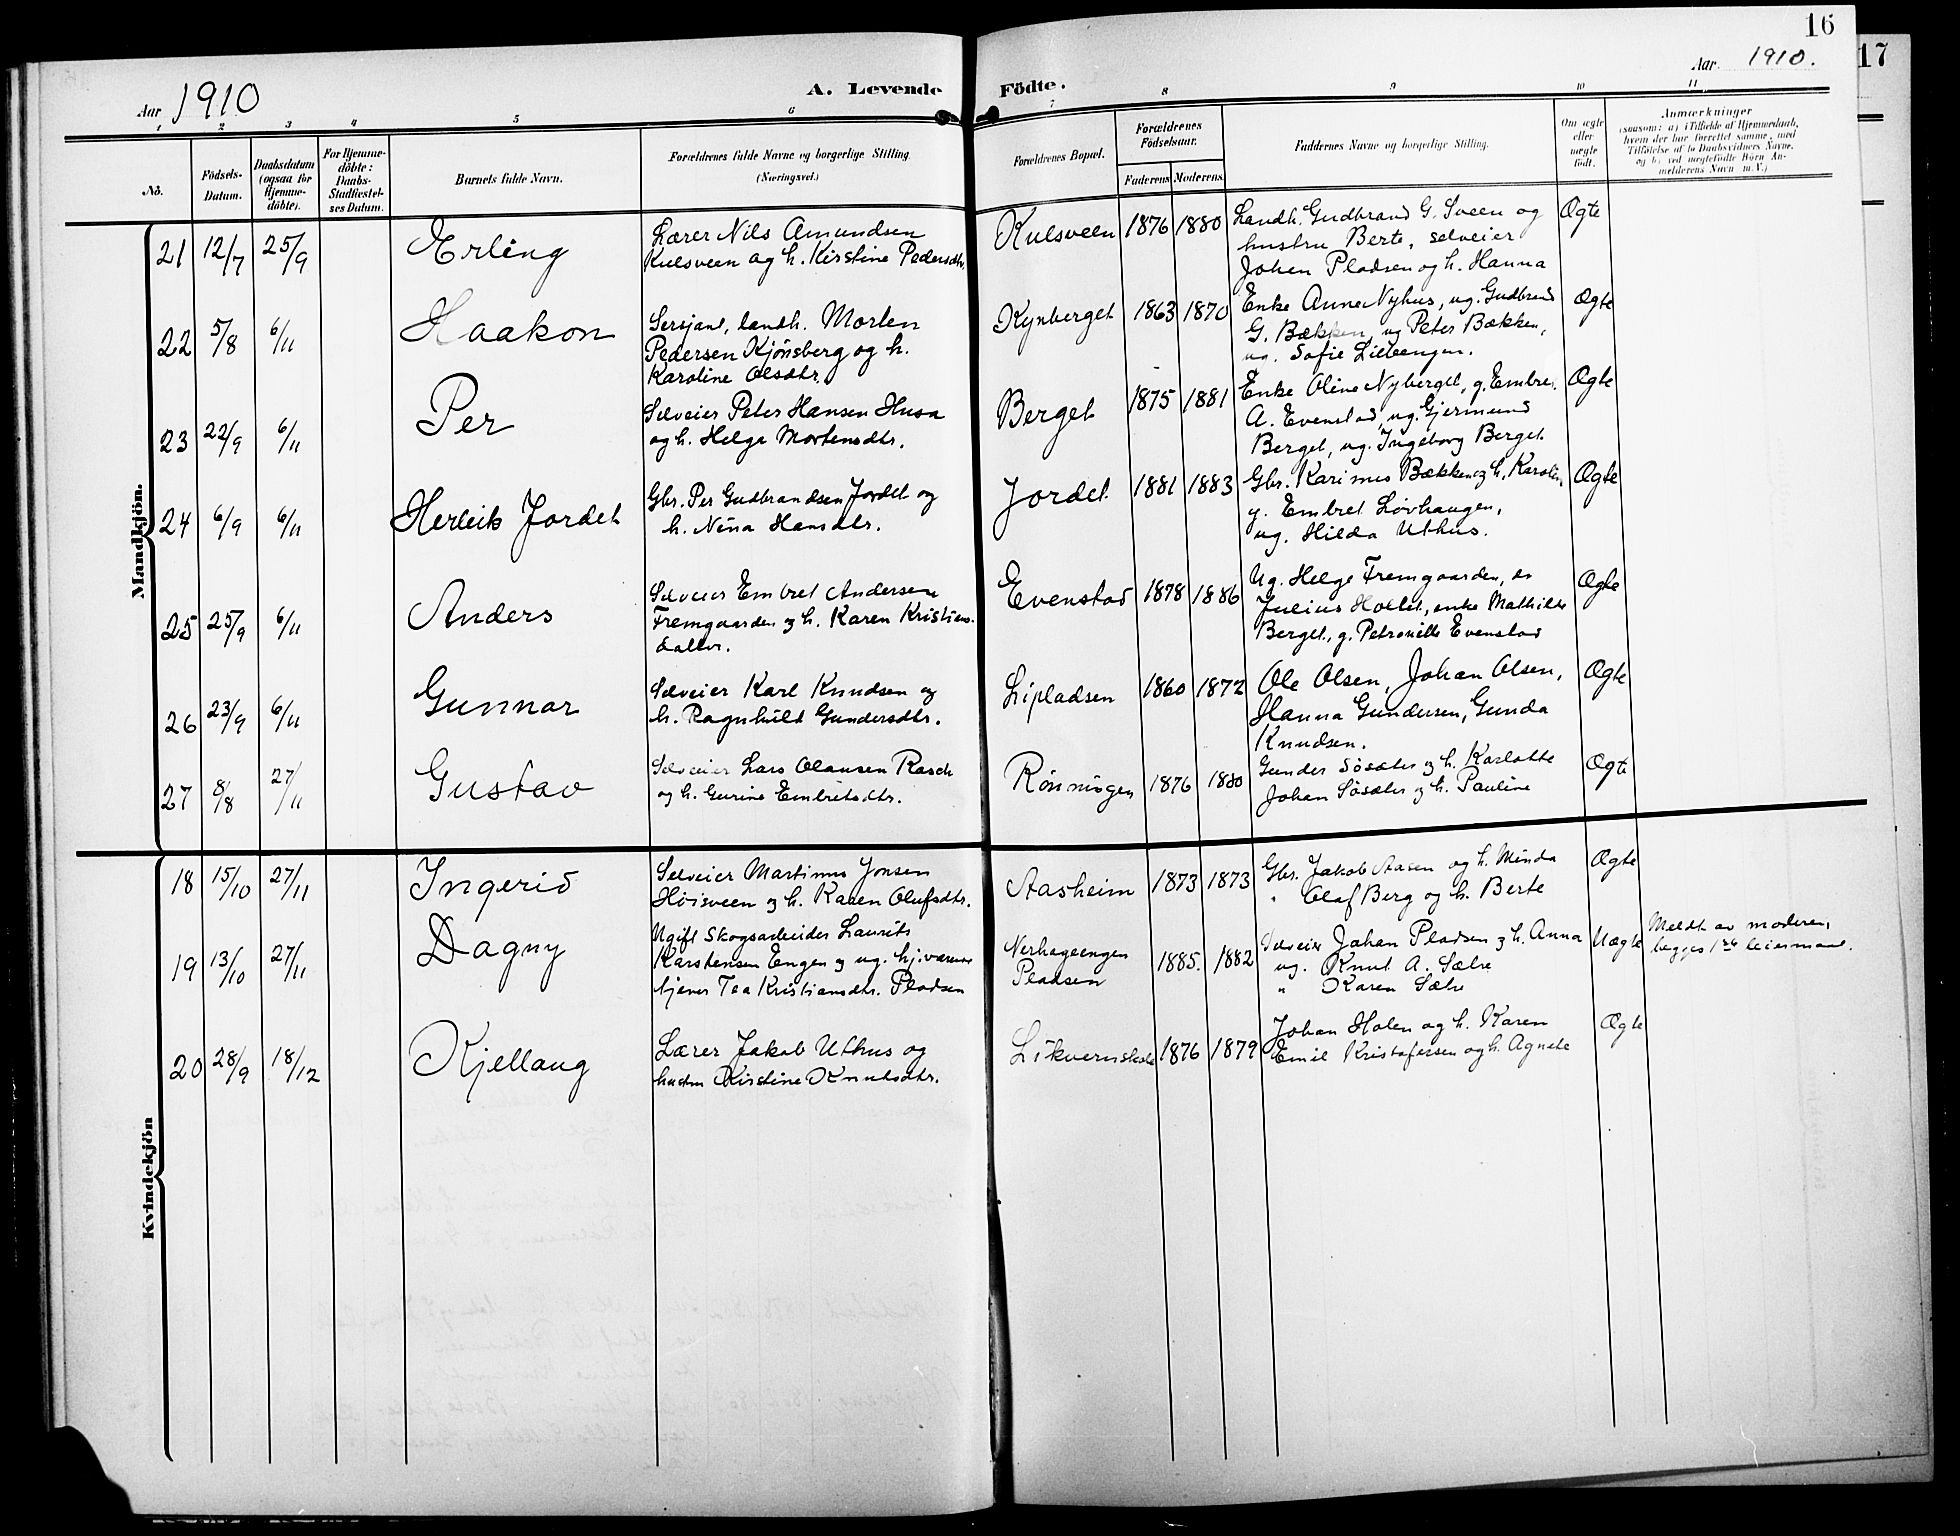 16
17
Aar 1910
A. Levende Födte.
Aar 1910.
1 2 3 4 5 6 7 8 9 10 11
No.
Födsels-Datum.
Daabsdatum (ogsaa for Hjemme-döbte).
For Hjemme-döbte: Daabs-Stadfæstel-ses Datum.
Barnets fulde Navn.
Forældrenes fulde Navne og borgerlige Stilling.
(Næringsvei.)
Forældrenes Bopæl.
Forældrenes Födselsaar.
Faderens Moderens
Faddernes Navne og borgerlige Stilling.
Om ægte eller uægte födt.
Anmærkninger
(saasom: a) i Tilfælde af Hjemmedaab,
hvem der har forrettet samme, med
Tilföielse af to Daabsvidners Navne,
og b) ved uægtefödte Börn An-
melderens Navn m. V.)
Mandkjön.
21 12/7 25/9 Erling
Lærer Nils Amundsen
Kulsveen og h. Kirstine Pedersdtr.
Kulsveen 1876 1880
Landh. Gudbrand G. Sveen og
hustru Berte, selveier
Johan Pladsen og h. Hanna
Ægte
22 5/8 6/11 Haakon
Sersjant, landh. Morten
Pedersen Kjönsberg og h.
Karoline Olsdtr.
Kynberget 1863 1870
Enke Anne Nyhus, ug. Gudbrand
G. Bækken, ug Peter Bækken,
ug. Sofie Lilleengen.
Ægte
23 22/9 6/11 Per
Selveier Peter Hansen Husa
og h. Helge Mortensdtr.
Berget 1875 1881
Enke Oline Nyberget, g. Embret
A. Evenstad, ug. Gjermund
Berget, ug. Ingeborg Berget
Ægte
24 6/9 6/11 Herleik Jordet
Gbr. Per Gudbrandsen Jordet og
h. Nina Hansdtr.
Jordet 1881 1883
Gbr. Karinus Bækken og h. Karoline,
g. Embret Lövhaugen,
ug. Hilda Uthus.
Ægte
25 25/9 6/11 Anders
Selveier Embret Andersen
Fremgaarden og h. Karen Kristians-
datter.
Evenstad 1878 1886
Ug. Helge Fremgaarden,
Julius Holtet, enke Mathilde
Berget, g. Petronille Evenstad
Ægte
26 23/9 6/11 Gunnar
Selveier Karl Knudsen og
h. Ragnhild Gundersdtr.
Lipladsen 1860 1872
Ole Olsen, Johan Olsen,
Hanna Gundersen, Gunda
Knudsen.
Ægte
27 8/8 27/11 Gustav
Selveier Lars Olausen Rasch
og h. Gurine Embretsdtr.
Rönningen 1876 1880
Gunder Sösæter og h. Karlotte
Johan Sösæter og h. Pauline
Ægte
Kvindekjön
18 15/10 27/11 Ingerid
Selveier Martinus Jonsen
Höisveen og h. Karen Olufsdtr.
Aasheim 1873 1873
Gbr. Jakob Aasen og h. Minda
" Olaf Berg og h. Berte
Ægte
19 13/10 27/11 Dagny
Ugift Skogsarbeider Laurits
Karstensen Engen og ug. hj.værende
tjener Tea Kristiansdtr. Pladsen
Nerhageengen
Pladsen
1885. 1882
Selveier Johan Pladsen og h. Anna
ug. Knut A. Sætre
" Karen Sætre
Uægte
Meldt av moderen,
begges 1ste leiermaal.
20 28/9 18/12 Kjellaug
Lærer Jakob Uthus og
hustru Kirstine Knutsdtr.
1876 1879
Johan Holen og h. Karen
Emil Kristofersen og h. Agnete
Ægte